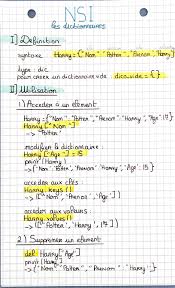 NSI
les dictionnaires
I] Définition
syntaxe Harry = {"Nom" : "Potter", "Prenom" : "Harry"}
type : dic
pour créer un dictionnaire vide : dico_vide = {}
II] Utilisation
1) Accéder à un élément
Harry = {"Nom" : "Potter", "Prenom" : "Harry", "Age" : 17}
Harry ["Nom"]
→ "Potter"
modifier le dictionnaire :
Harry ["Age"] = 15
print (Harry)
→ {"Nom" : "Potter", "Prenom" : "Harry", "Age" : 15}
accéder aux clés :
Harry.keys ()
→ (["Nom", "Prenom", "Age"])
accéder aux valeurs :
Harry.values ()
→ (["Potter", "Harry", 17])
2) Supprimer un élément
del Harry ["Age"]
print (Harry)
→ {"Nom" : "Potter", "Prenom" : "Harry"}